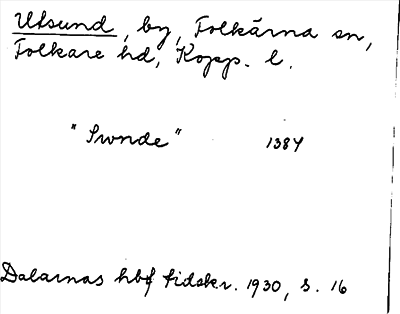 Utsund, by, Folkärna sn,
Folkare hd, Kopp. l.
"Swnde" 1384
Dalarnas hbf tidskr. 1930, s. 16